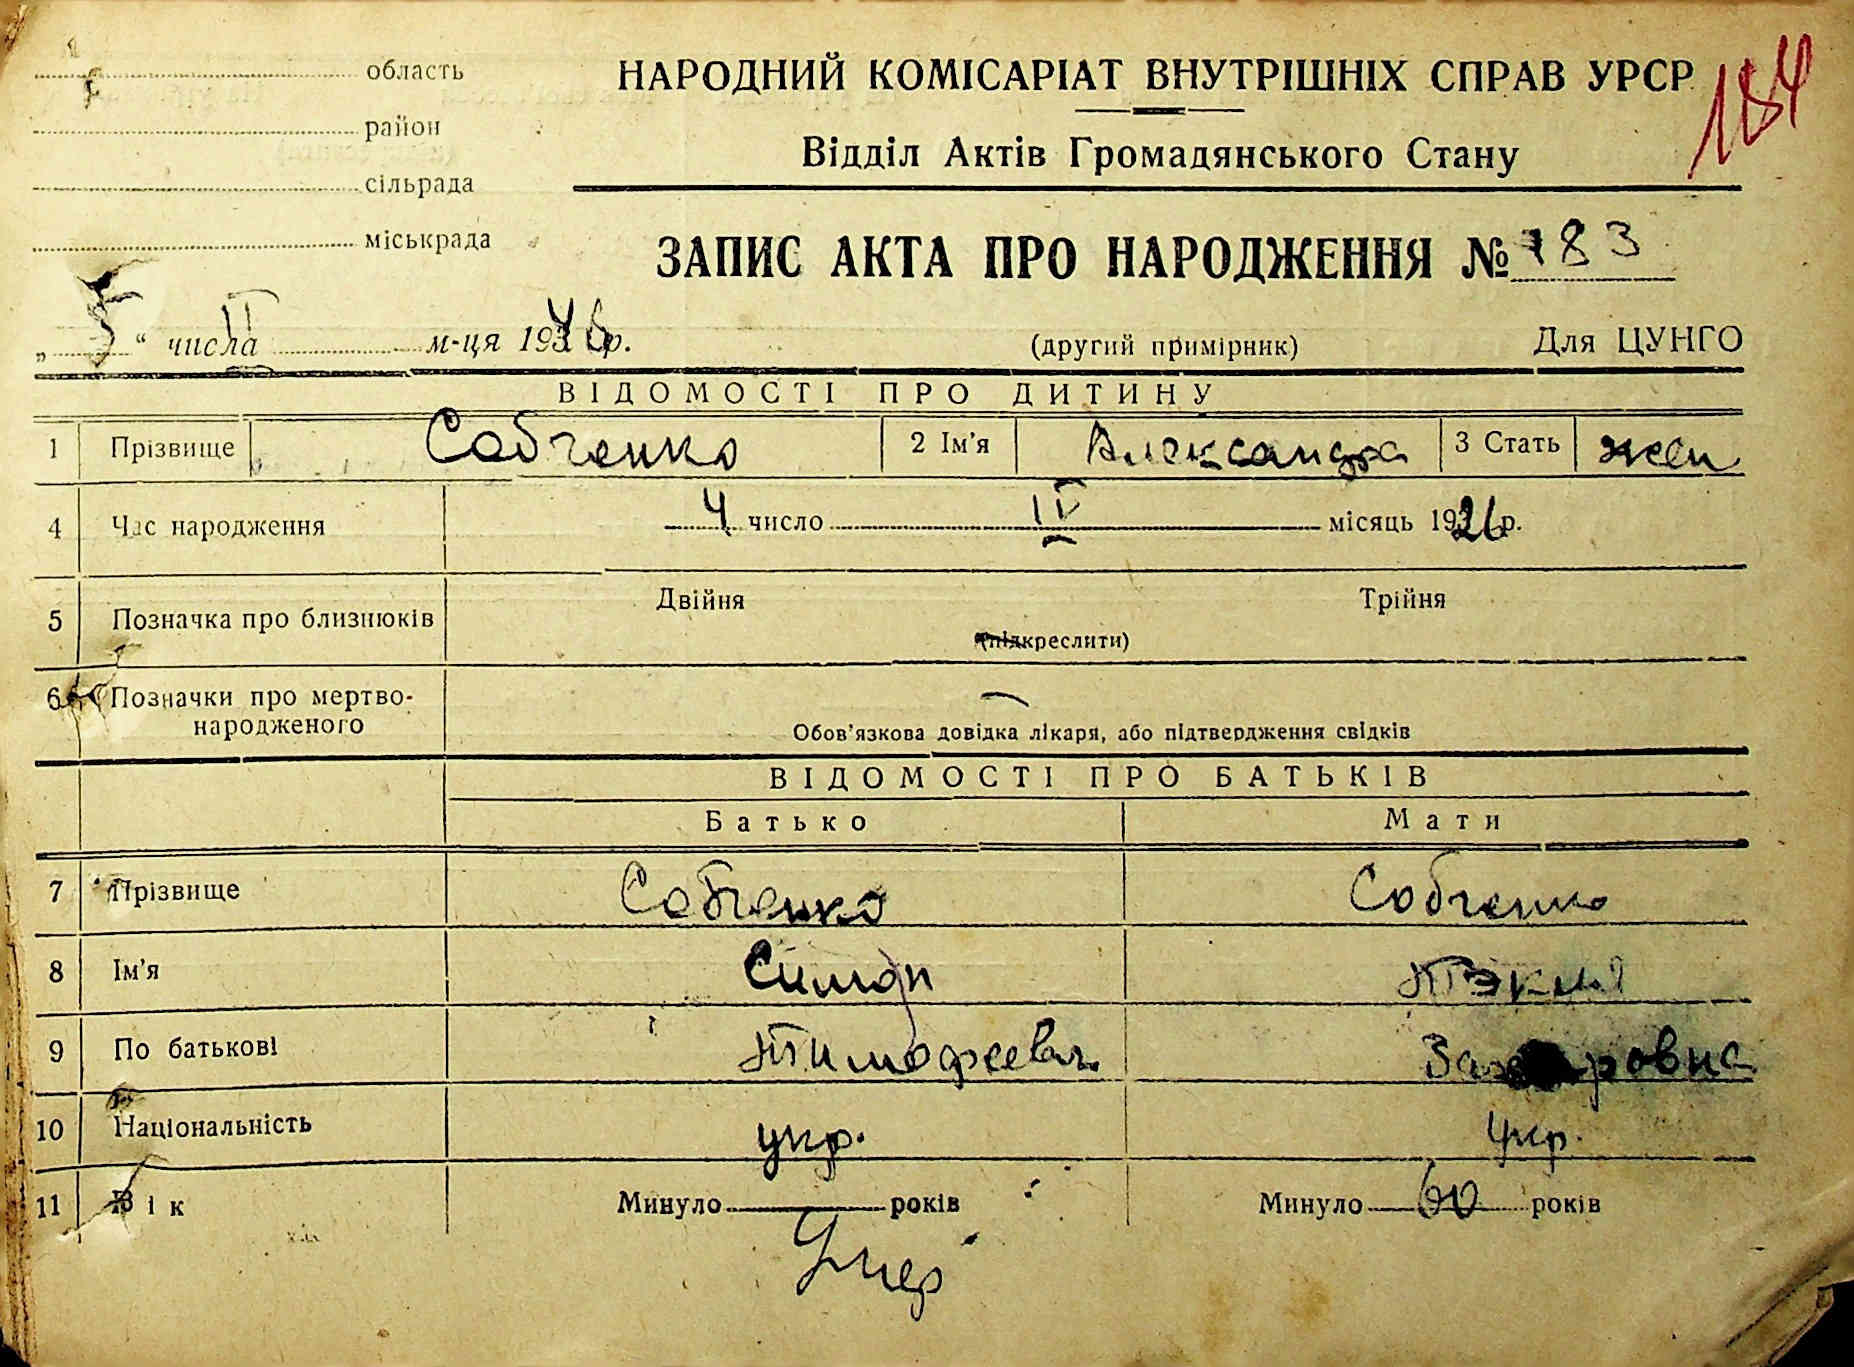 область
район
сільрада
міськрада
НАРОДНИЙ КОМІСАРІАТ ВНУТРІШНІХ СПРАВ УРСР
184
Відділ Актів Громадянського Стану
ЗАПИС АКТА ПРО НАРОДЖЕННЯ № 183
„ 5 “ числа VI м-ця 193 р.
(другий примірник)
Для ЦУНГО
ВІДОМОСТІ ПРО ДИТИНУ
1 Прізвище Собченко 2 Ім’я Александра 3 Стать жен
4 Час народження 4 число IV місяць 1926 р.
5 Позначка про близнюків Двійня Трійня
(підкреслити)
6 Позначки про мертво-
народженого
Обов’язкова довідка лікаря, або підтвердження свідків
ВІДОМОСТІ ПРО БАТЬКІВ
Батько Мати
7 Прізвище Собченко Собченко
8 Ім’я Симон Тэкля
9 По батькові Тимофеевич Захаровна
10 Національність укр. Укр.
11 Вік Минуло років Минуло 60 років
Умер